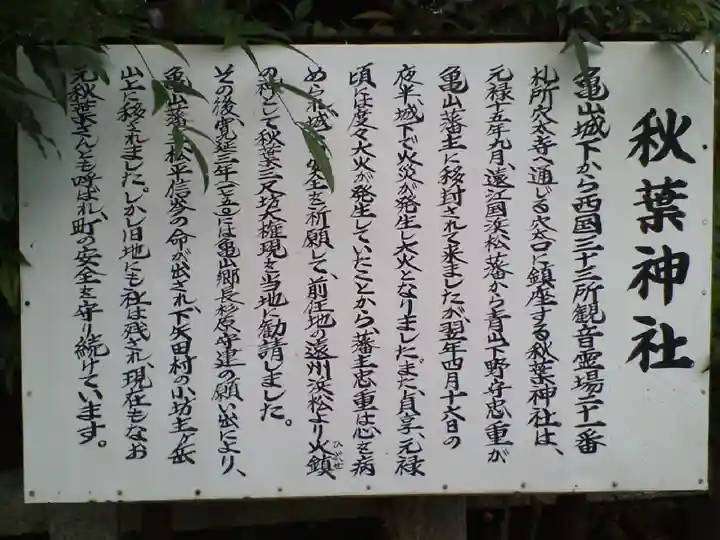 秋葉神社
亀山城下から西国三十三所観音霊場二十一番
札所穴太寺へ通じる穴太口に鎮座する秋葉神社は、
元禄十五年九月、遠江国浜松藩から青山下野守忠重が
亀山藩主に移封されて来ましたが翌年四月十六日の
夜半、城下で火災が発生し大火となりました。また、貞享、元禄
頃には度々大火が発生していたことから、藩主忠重は心を病
められ、城下の安全を祈願して、前任地の遠州浜松より火鎮
ひぶせ
の神として秋葉三尺坊大権現を当地に勧請しました。
その後、寛延三年(一七五〇)には亀山郷長杉原守連の願い出により、
亀山藩主松平信岑の命が出され、下矢田村の小坊主ヶ岳
山上に移されました。しかし旧地にも社は残され、現在もなお
元秋葉さんとも呼ばれ、町の安全を守り続けています。